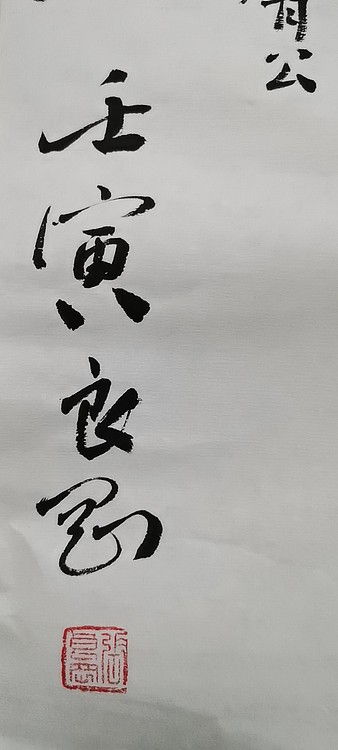 公
壬寅良剛